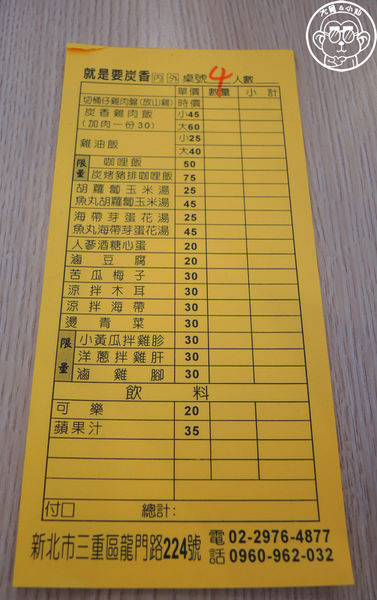 大圓&小仙
就是要炭香 內 外 桌號 4 人數
單價 數量 小計
切桶仔雞肉盤(放山雞) 時價
炭香雞肉飯 小45
(加肉一份30) 大60
雞油飯 小25
大40
限量 咖哩飯 50
炭烤豬排咖哩飯 75
胡蘿蔔玉米湯 25
魚丸胡蘿蔔玉米湯 45
海帶芽蛋花湯 25
魚丸海帶芽蛋花湯 45
人蔘酒糖心蛋 20
滷豆腐 20
苦瓜梅子 30
涼拌木耳 30
涼拌海帶 30
燙青菜 30
限量 小黃瓜拌雞胗 30
洋蔥拌雞肝 30
滷雞腳 30
飲料
可樂 20
蘋果汁 35
付口 總計:
新北市三重區龍門路224號 電話 02-2976-4877
0960-962-032